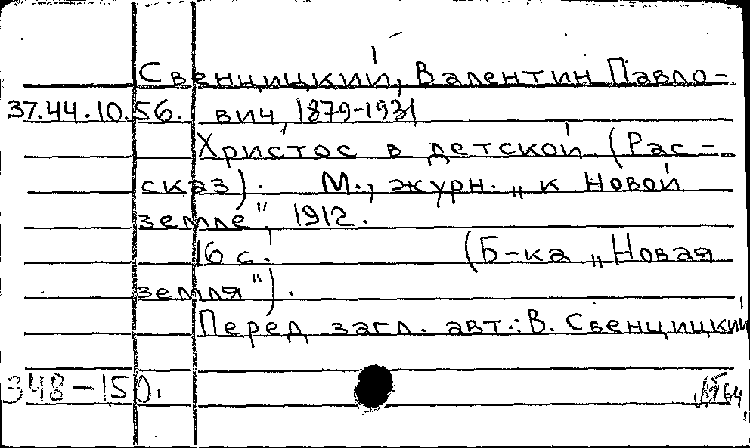 Свенцицкий, Валентин Павло-
37.44.10.56. вич, 1879-1931
Христос в детской (Рас-
сказ). М., журн. „к Новой
земле", 1912.
16 с. (Б-ка „Новая
земля").
Перед загл. авт.: В. Свенцицкий
348-150.